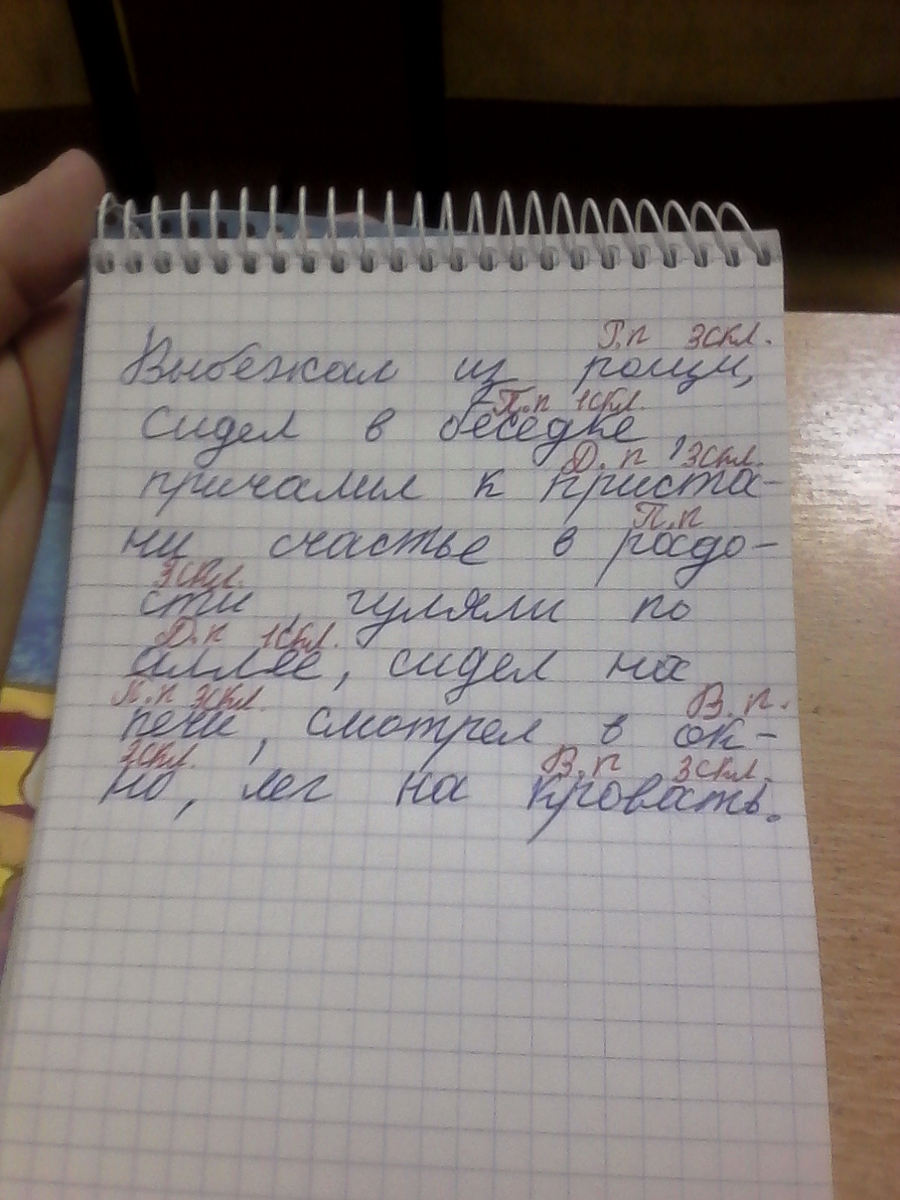 Г.п 3скл.
Выбежал из рощи,
П.п 1скл.
сидел в беседке,
Д.п 3скл.
причалил к приста-
П.п
ни счастье в радо-
3скл.
сти, гуляли по
Д.п 1скл.
аллее, сидел на
П.п 3скл. В.п.
печи, смотрел в ок-
3скл. В.п 3скл.
но, лег на кровать.